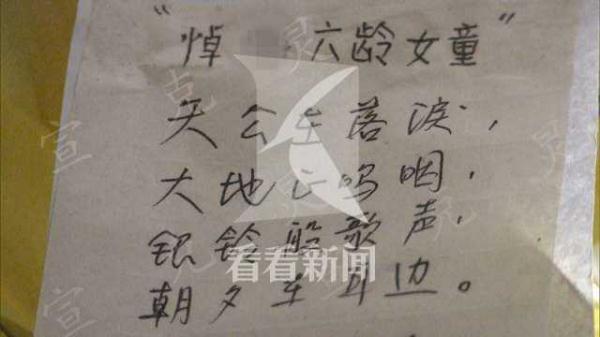 “悼 六龄女童”
天公在落泪，
大地在呜咽，
银铃般歌声，
朝夕在耳边。
看看新闻